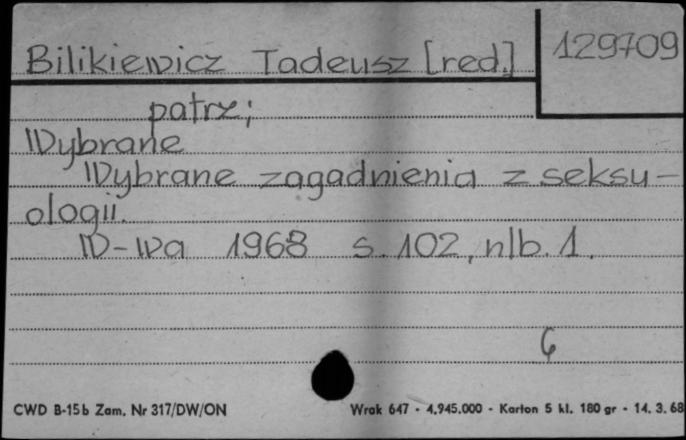 Bilikiewicz Tadeusz [red.]
129709
patrz;
Wybrane
Wybrane zagadnienia z seksu-
ologii.
W-wa 1968 s. 102, nlb. 1.
6
CWD B-15b Zam. Nr 317/DW/ON
Wrak 647 - 4.945.000 - Karton 5 kl. 180 gr - 14. 3. 68